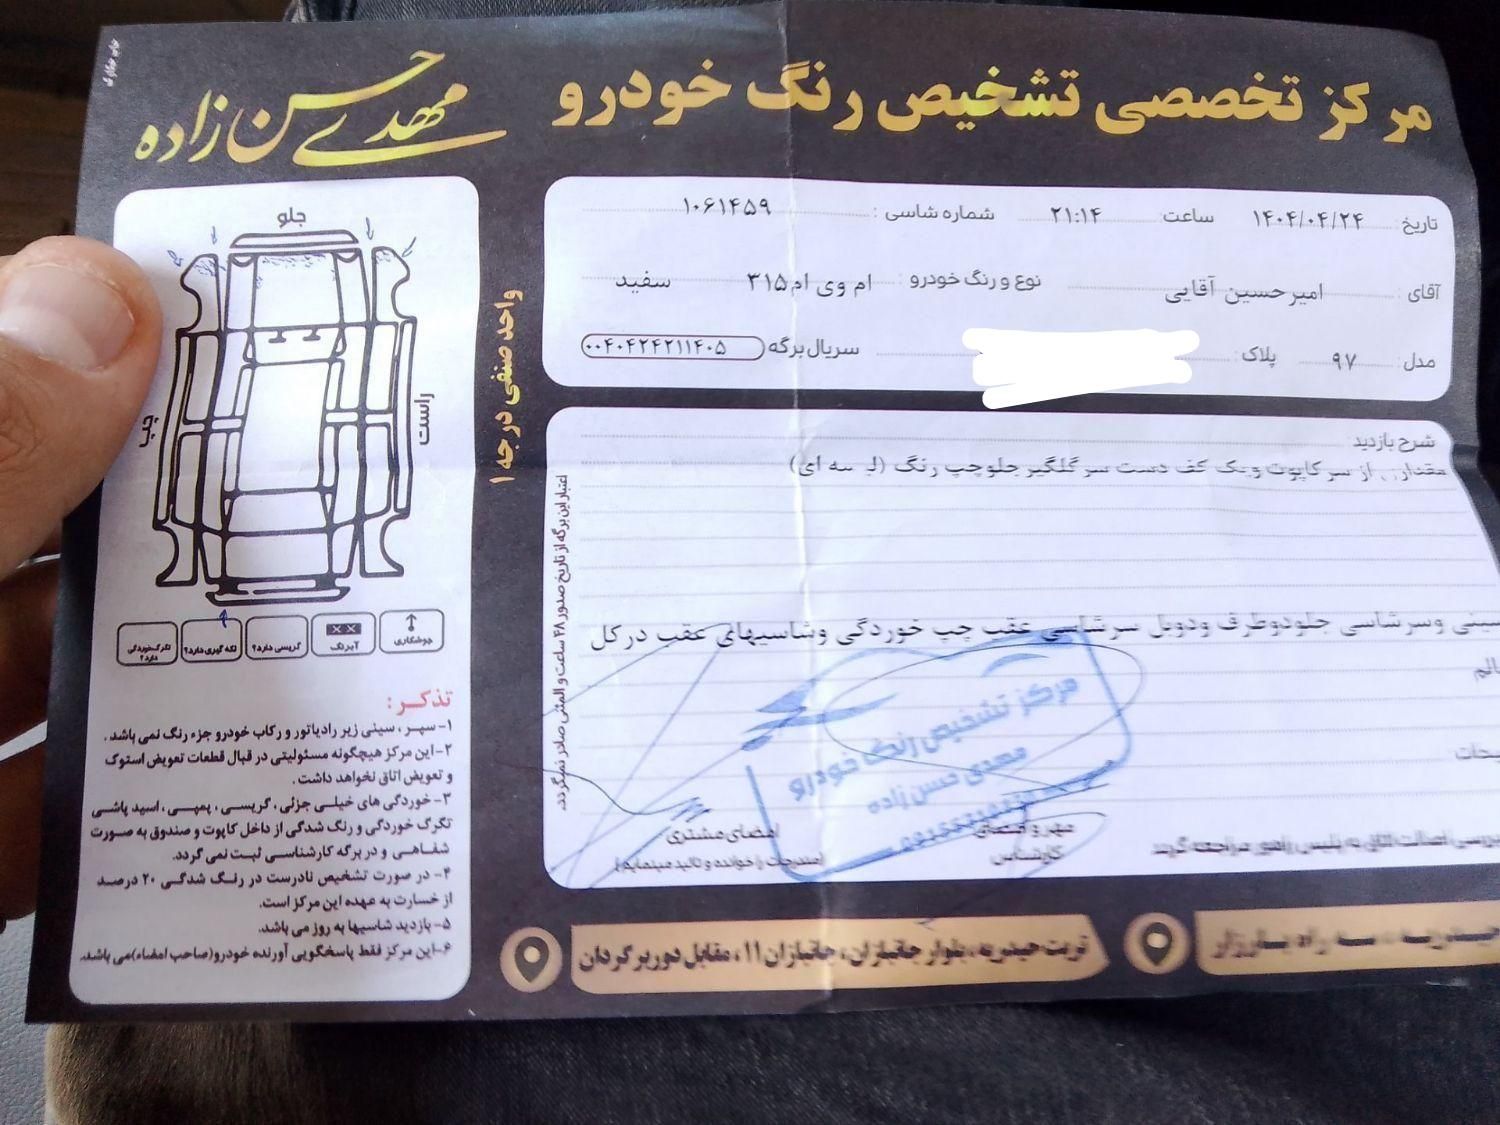 مرکز تخصصی تشخیص رنگ خودرو
مهدی حسن زاده
تاریخ: ۱۴۰۴/۰۴/۲۴ ساعت ۲۱:۱۴ شماره شاسی: ۱۰۶۱۴۵۹
آقای: امیرحسین آقایی نوع و رنگ خودرو: ام وی ام ۳۱۵ سفید
مدل: ۹۷ پلاک: سریال برگه ۰۰۴۰۴۲۴۲۱۱۴۰۵
شرح بازدید:
از سر کاپوت و یک کف دست سر گلگیر جلو چپ رنگ
سینی و سرشاسی جلو دو طرف و دوبل سرشاسی عقب چپ خوردگی و شاسیهای عقب در کل
مرکز تشخیص رنگ خودرو
مهدی حسن زاده
مهر و امضای
کارشناس
امضای مشتری
(مندرجات را خوانده و تائید مینمایم)
بررسی اصالت اتاق به پلیس راهور مراجعه گردد
اعتبار این برگه از تاریخ صدور ۴۸ ساعت و المثنی صادر نمیگردد.
واحد صنفی درجه ۱
جلو
چپ
راست
جوشکاری
آبرنگ
گریسی دارد؟
لکه گیری دارد؟
تگرگ خوردگی دارد؟
تذکر:
۱- سپر، سینی زیر رادیاتور و رکاب خودرو جزء رنگ نمی باشد.
۲- این مرکز هیچگونه مسئولیتی در قبال قطعات تعویض استوک
و تعویض اتاق نخواهد داشت.
۳- خوردگی های خیلی جزئی، گریسی، پمپی، اسید پاشی
تگرگ خوردگی و رنگ شدگی از داخل کاپوت و صندوق به صورت
شفاهی و در برگه کارشناسی ثبت نمی گردد.
۴- در صورت تشخیص نادرست در رنگ شدگی ۲۰ درصد
از خسارت به عهده این مرکز است.
۵- بازدید شاسیها به روز می باشد.
۶- این مرکز فقط پاسخگویی آورنده خودرو(صاحب امضاء)می باشد.
تربت حیدریه، بلوار جانبازان، جانبازان ۱۱، مقابل دوربرگردان